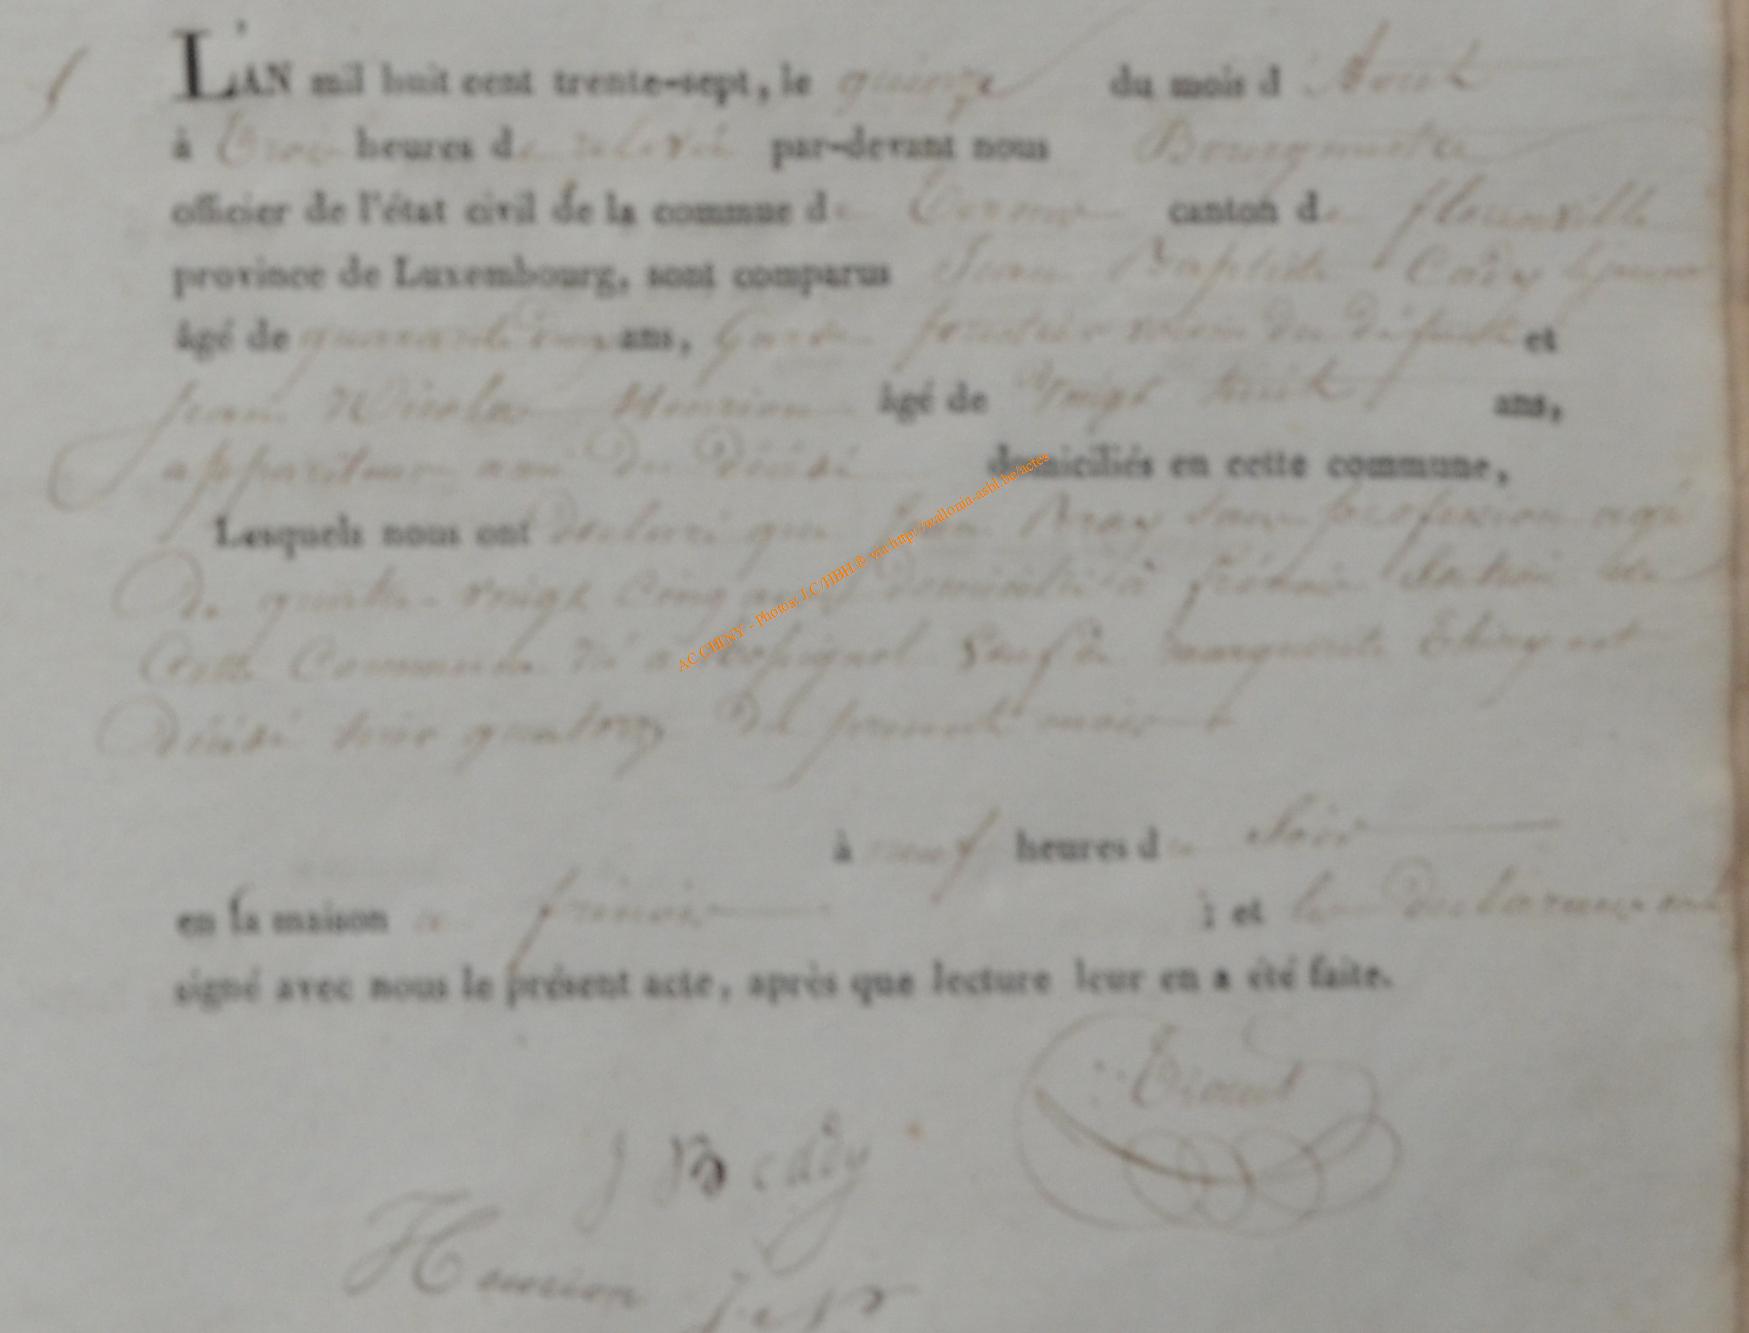 L'AN mil huit cent trente-sept, le quinze du mois d'Aout
à trois heures de relevée par-devant nous Bourgmestre
officier de l'état civil de la commune de Termes canton de florenville
province de Luxembourg, sont comparus Jean Baptiste Cady
âgé de quarante cinq ans, Garde forestier voisin du défunt et
jean Nicolas Henrion âgé de vingt huit ans,
appariteur ami du décédé domiciliés en cette commune,
Lesquels nous ont declaré que Bray sans profession agé
De quatre-vingt cinq ans domicilié à frénois Section de
Cette Commune né a rossignol veuf de marguerite est
Décédé hier quatorze du present mois
à neuf heures du Soir
en sa maison a frénois ; et les Declarans ont
signé avec nous le présent acte, après que lecture leur en a été faite.
J B Cady
Henrion J. N
AC CHINY - Photos: J.C/HBH.® via http://wallonia-asbl.be/actes